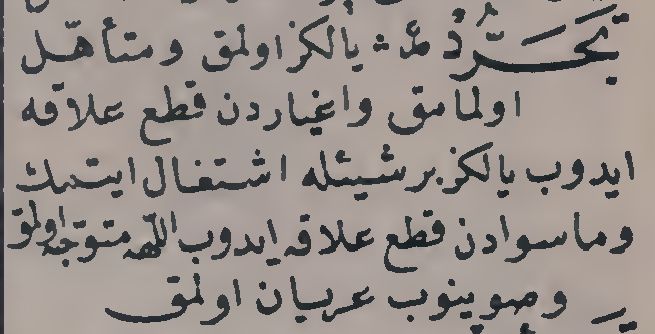 تَجَرُّدْ مث يالكز اولمق و متأهل
اولمامق واغياردن قطع علاقه
ايدوب يالكز برشيئله اشتغال ايتمك
وماسوادن قطع علاقه ايدوب اللّٰهه متوجه اولمق
وصوينوب عريان اولمق